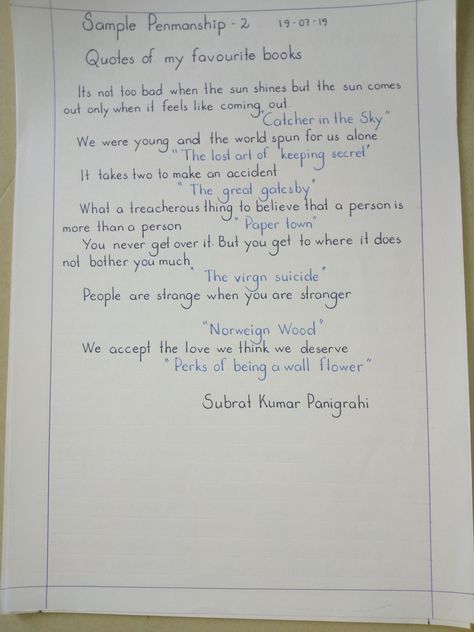 Sample Penmanship - 2 19-07-19
Quotes of my favourite books
Its not too bad when the sun shines but the sun comes
out only when it feels like coming out.
"Catcher in the Sky"
We were young and the world spun for us alone
"The lost art of keeping secret"
It takes two to make an accident
"The great gatesby"
What a treacherous thing to believe that a person is
more than a person "Paper town"
You never get over it. But you get to where it does
not bother you much
"The virgn suicide"
People are strange when you are stranger
"Norweign Wood"
We accept the love we think we deserve
"Perks of being a wall flower"
Subrat Kumar Panigrahi